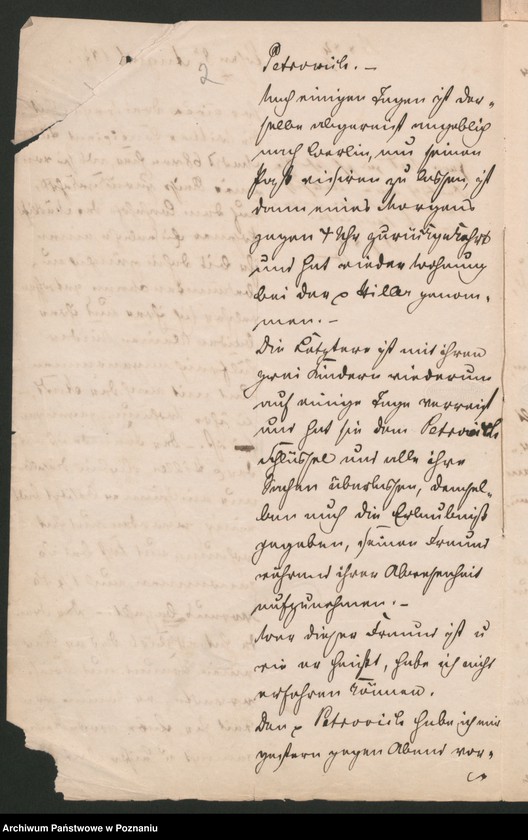 2
Petrovich. —
Nach einigen Tagen ist der-
selbe abgereist angeblich
nach Berlin, um seinen
Paß visiren zu lassen, ist
dann eines Morgens
gegen 7 Uhr zurückgekehrt
und hat wieder Wohnung
bei der p Hiller genom-
men. —
Die Letztere ist mit ihren
zwei Kindern wiederum
auf einige Tage verreist
und hat sie dem Petrovich
Schlüssel und alle ihre
Sachen überlassen, demsel-
ben auch die Erlaubniß
gegeben, seinen Freund
während ihrer Abwesenheit
aufzunehmen. —
Wer dieser Freund ist u
wie er heißt, habe ich nicht
erfahren können.
Den p Petrovich habe ich mir
gestern gegen Abend vor-
Archiwum Państwowe w Poznaniu